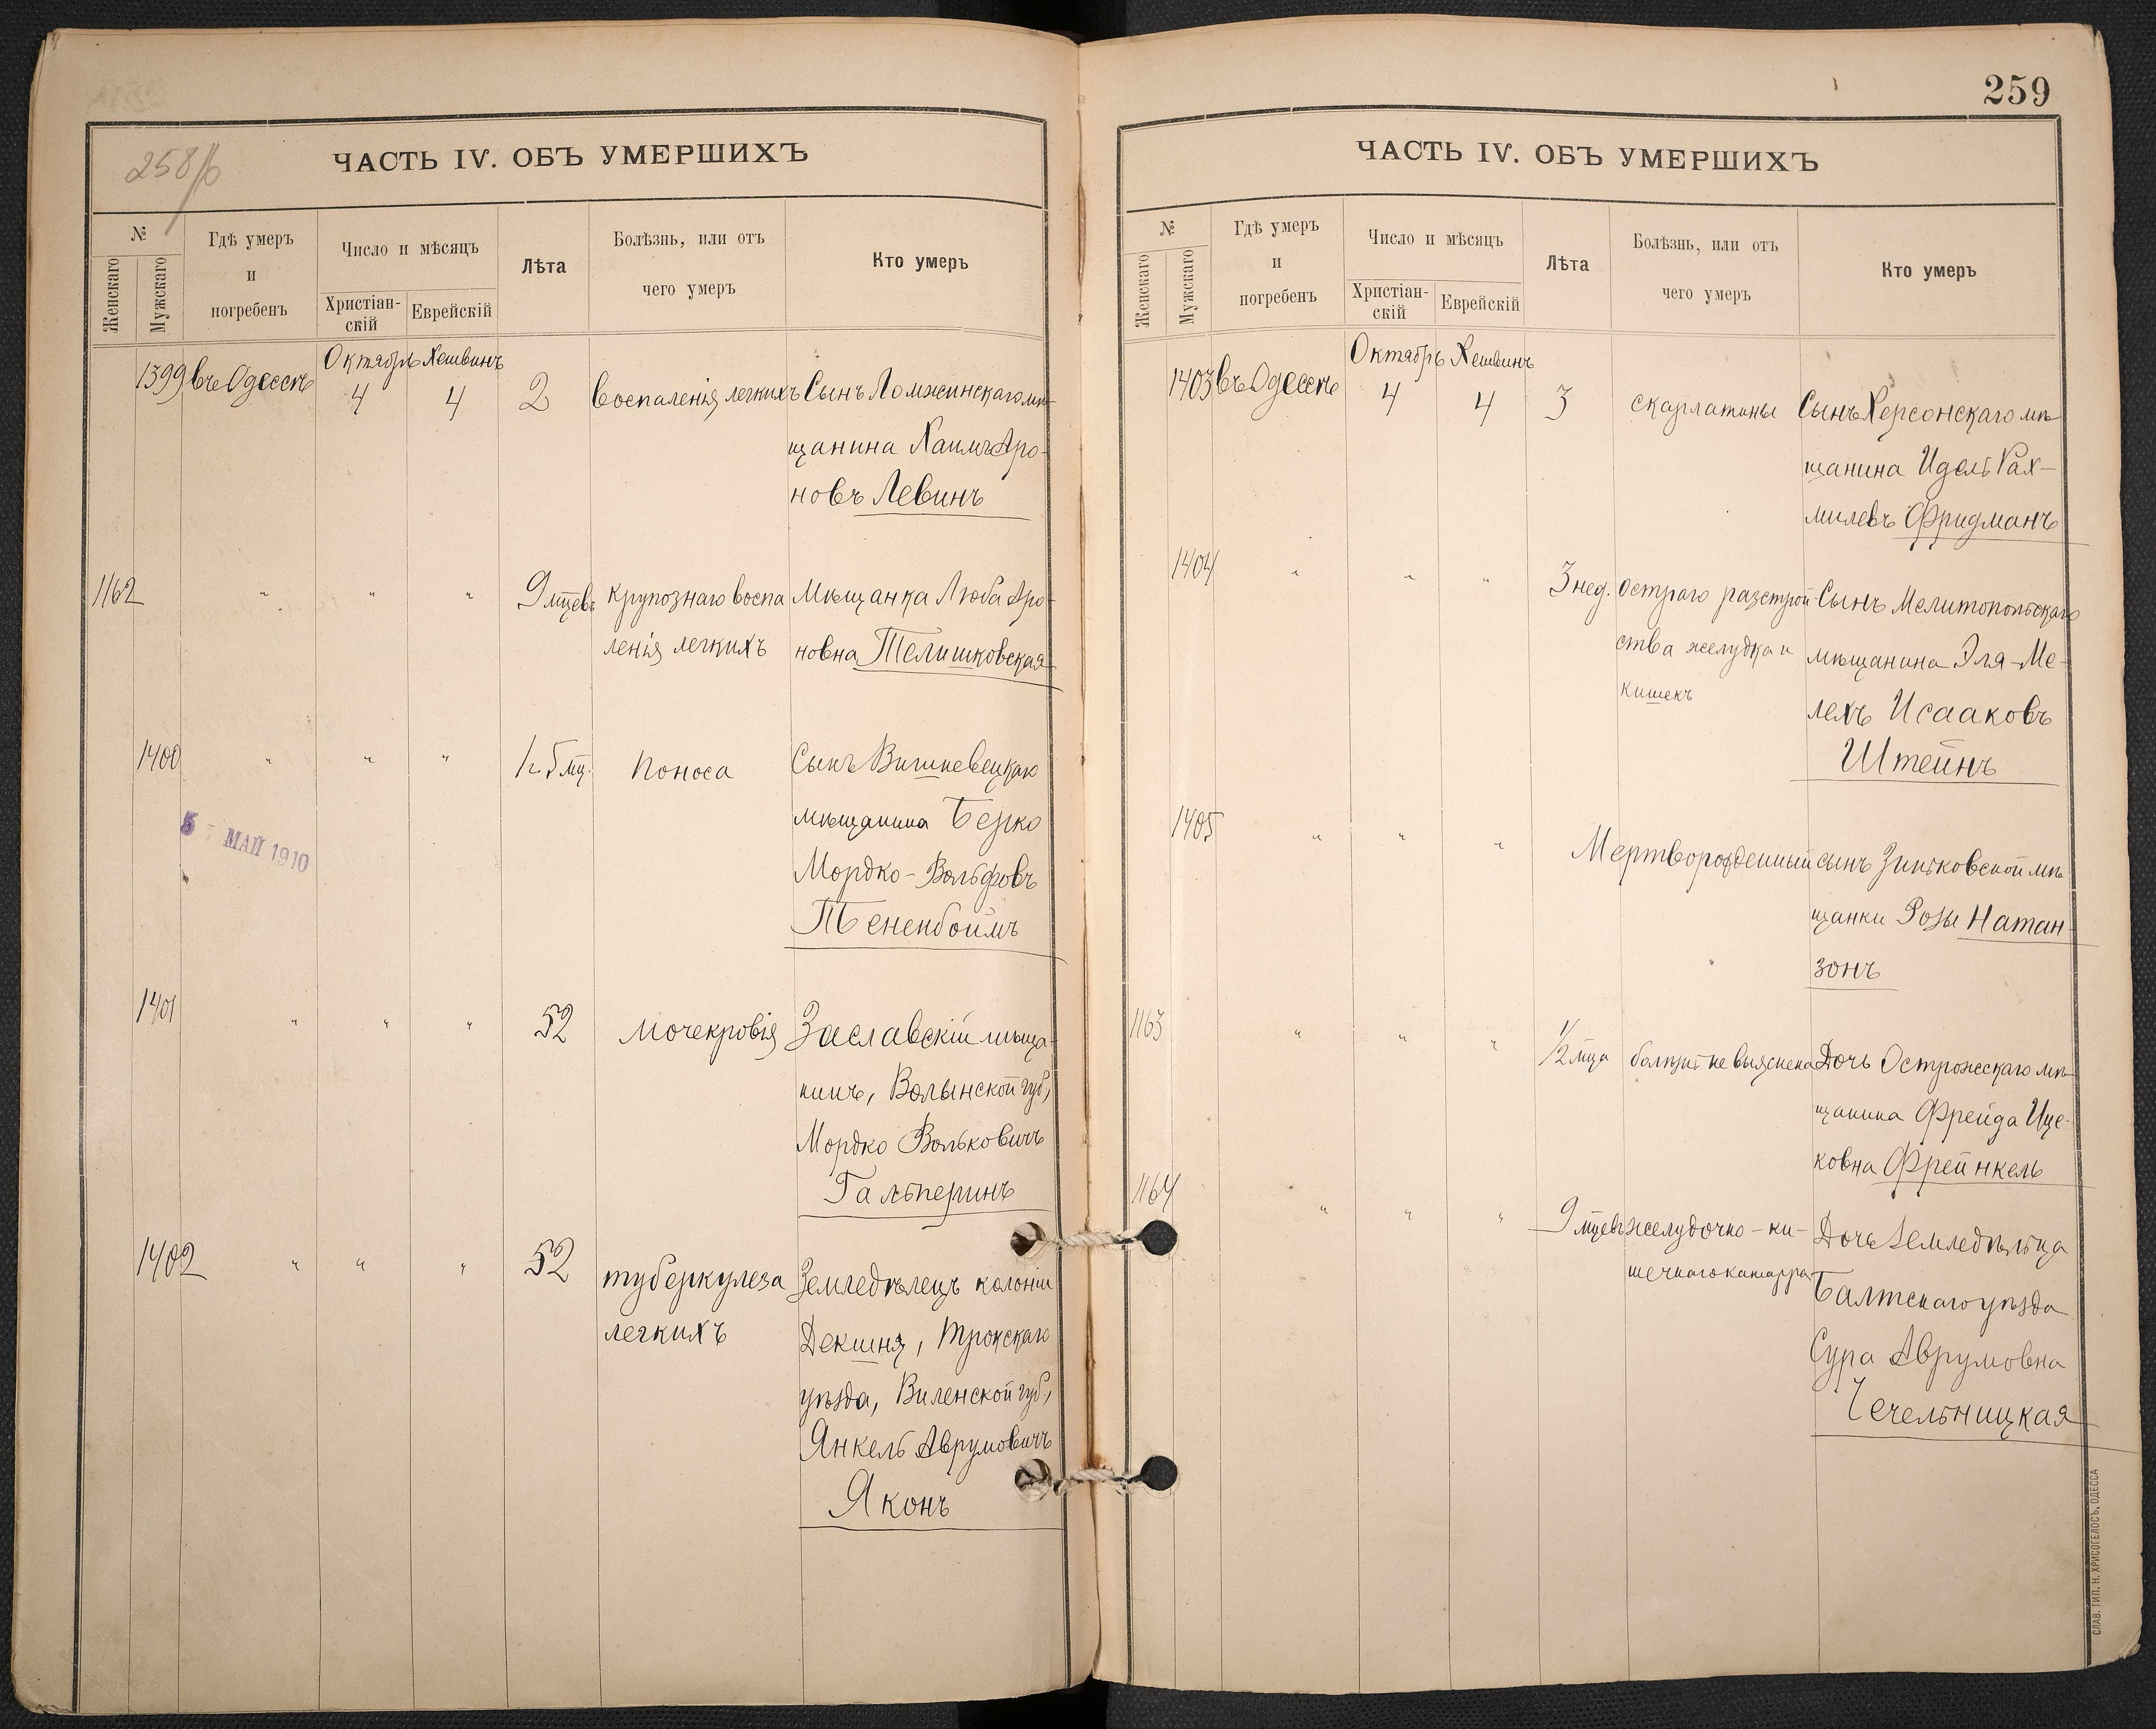 258/б
ЧАСТЬ IV. ОБЪ УМЕРШИХЪ
№
Женскаго
Мужскаго
Гдѣ умеръ
и
погребенъ
Число и мѣсяцъ
Христіан-
скій
Еврейскій
Лѣта
Болѣзнь, или отъ
чего умеръ
Кто умеръ
Октябрь Хешвинъ
1399 въ Одессѣ 4 4 2 воспаленія легкихъ Сынъ Ломжинскаго мѣ-
щанина Хаимъ Аро-
новъ Левинъ
1162 " " " 9 мцевъ крупознаго воспа Мѣщанка Люба Аро-
ленія легкихъ новна Телишковская
1400 " " " 1 г. 5 мц. поноса Сынъ Вишневецкаго
мѣщанина Берко
Мордко-Вольфовъ
Тененбоймъ
5 МАЙ 1910
1401 " " " 52 мочекровія Заславскій мѣща-
нинъ, Волынской губ,
Мордко Вольковичъ
Гальперинъ
1402 " " " 52 туберкулеза Земледѣлецъ колоніи
легкихъ Декшня, Трокскаго
уѣзда, Виленской губ,
Янкель Аврумовичъ
Яконъ
259
ЧАСТЬ IV. ОБЪ УМЕРШИХЪ
№
Женскаго
Мужскаго
Гдѣ умеръ
и
погребенъ
Число и мѣсяцъ
Христіан-
скій
Еврейскій
Лѣта
Болѣзнь, или отъ
чего умеръ
Кто умеръ
Октябрь Хешвинъ
1403 въ Одессѣ 4 4 3 скарлатины Сынъ Херсонскаго мѣ
щанина Идель Рах-
милевъ Фридманъ
1404 " " " 3 нед. остраго разстрой- Сынъ Мелитопольскаго
ства желудка и мѣщанина Эля-Ме-
кишекъ лехъ Исааковъ
Штейнъ
1405 " " " Мертворожденный сынъ Зиньковской мѣ
щанки Розы Натан-
зонъ
1163 " " " 1/2 мца болѣзнь не выяснена Дочь Острожскаго мѣ-
щанина Фрейда Ице-
ковна Фрейнкель
1164 " " " 9 мцевъ желудочно-ки- Дочь Земледѣльца
шечнаго катарра Балтскаго уѣзда
Сура Аврумовна
Чечельницкая
СЛАВ. ТИП. Н. ХРИСОГЕЛОСЪ, ОДЕССА